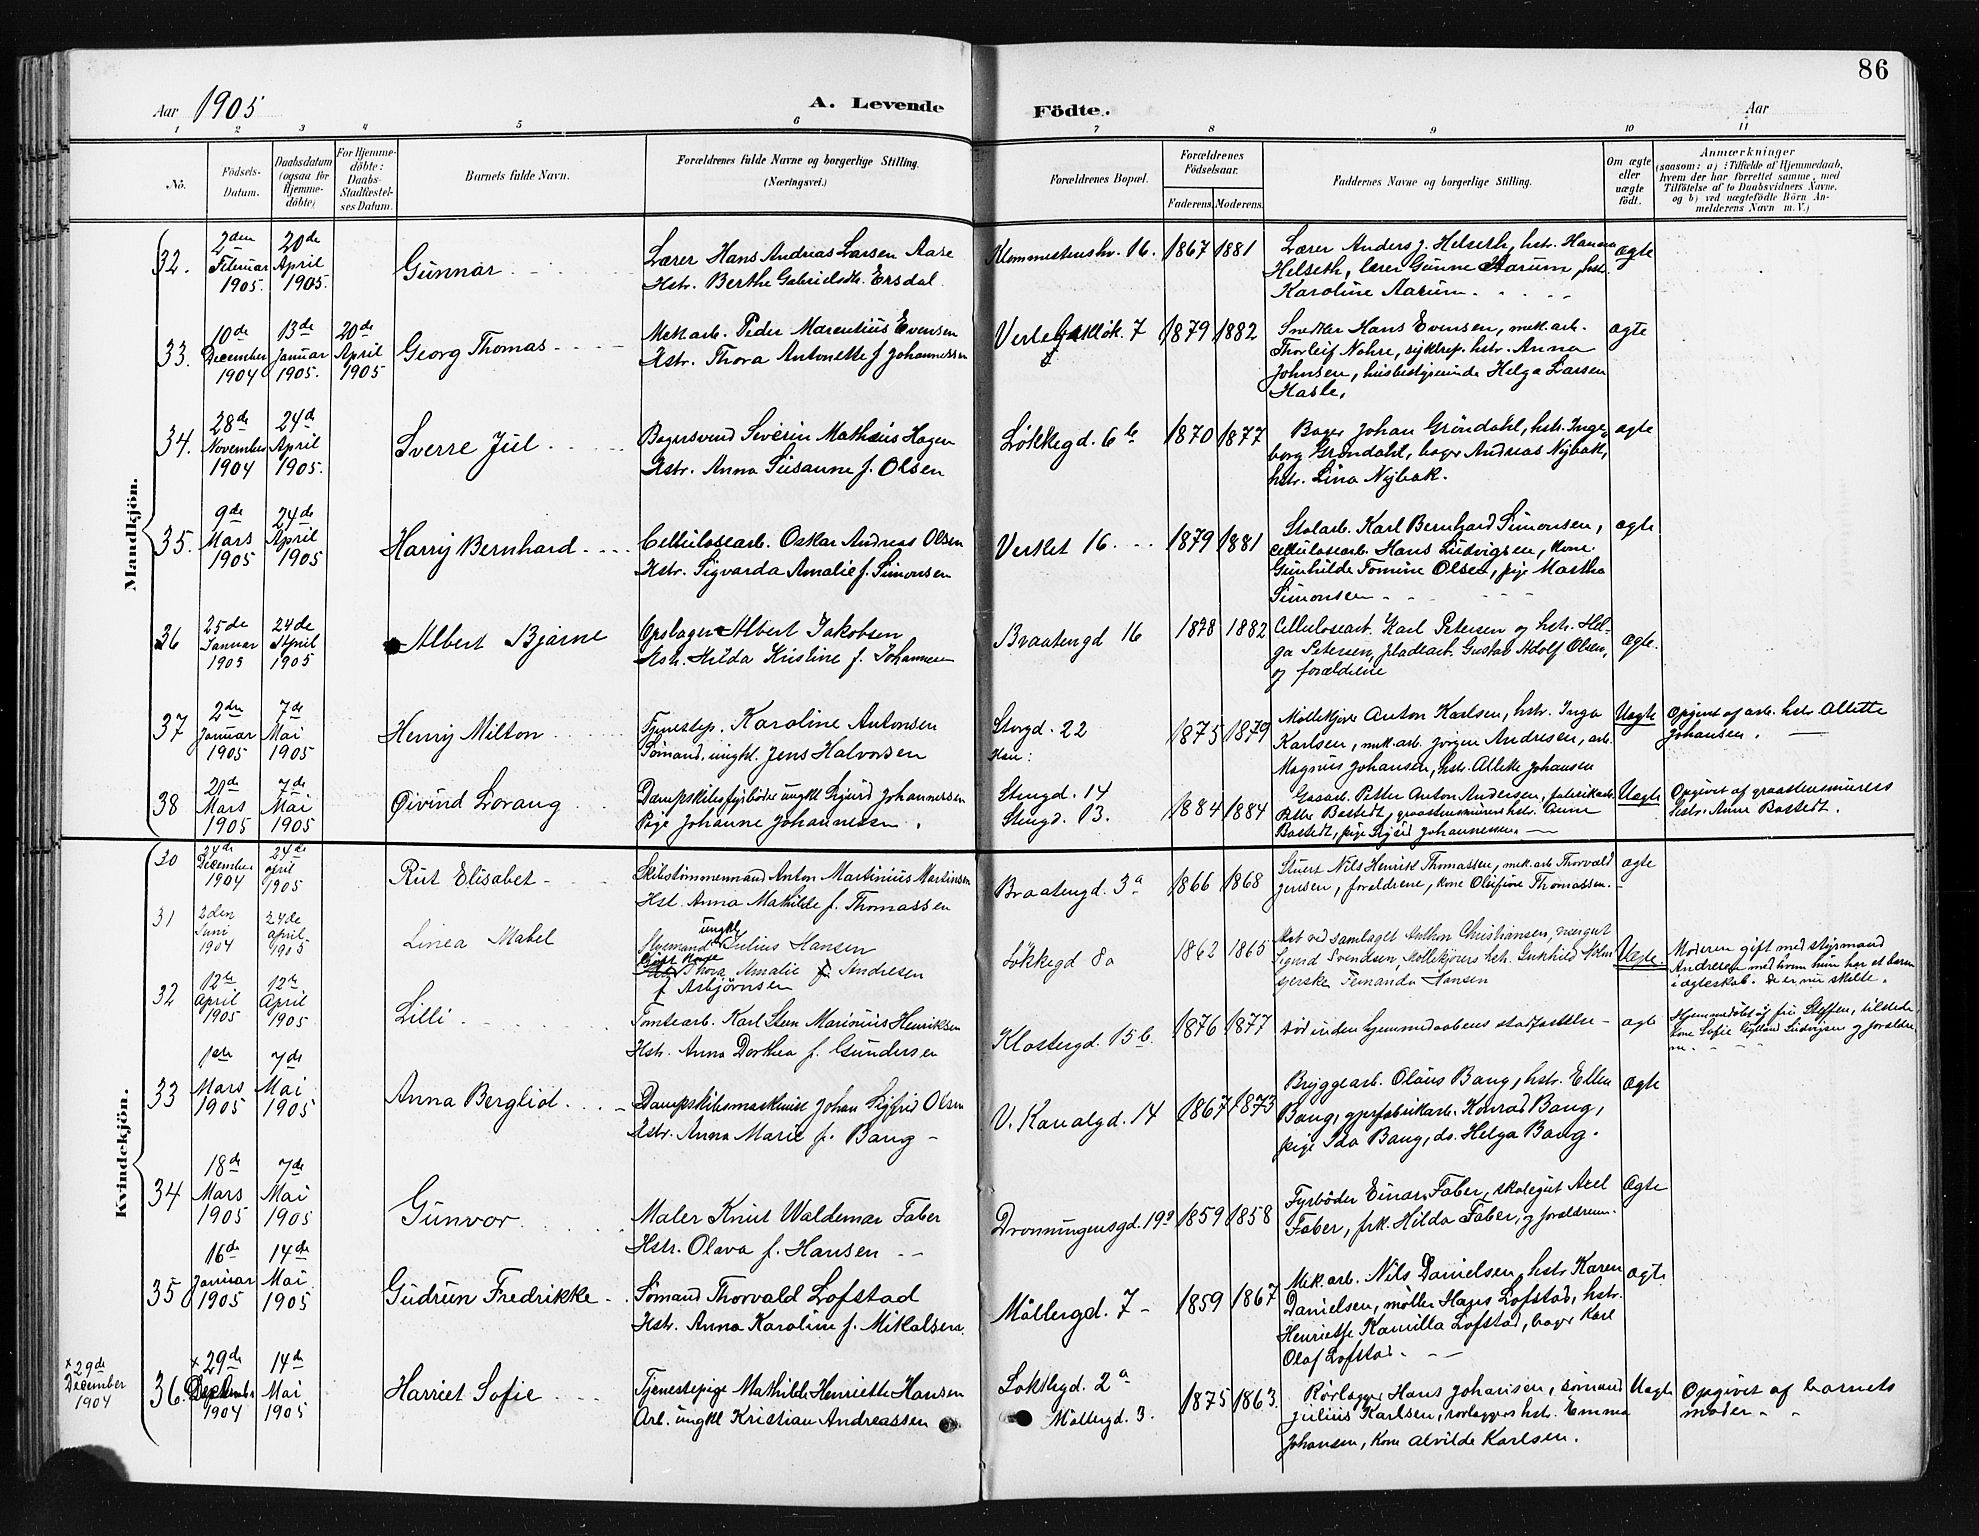 86
Aar 1905
A. Levende Födte.
Aar
1 2 3 4 5 6 7 8 9 10 11
No.
Födsels-
Datum.
Daabsdatum
(ogsaa for
Hjemme-
döbte)
For Hjemme-
döbte:
Daabs-
Stadfæstel-
ses Datum.
Barnets fulde Navn.
Forældrenes fulde Navne og borgerlige Stilling.
(Næringsvei.)
Forældrenes Bopæl.
Forældrenes
Födselsaar.
Faderens. Moderens.
Faddernes Navne og borgerlige Stilling.
Om ægte
eller
uægte
födt.
Anmærkninger
(saasom: a) i Tilfælde af Hjemmedaab,
hvem der har forrettet samme, med
Tilföielse af to Daabsvidners Navne,
og b) ved uægtefödte Börn An-
melderens Navn m. V.)
Mandkjön.
32.
2den
Februar
1905.
20de
April
1905.
Gunnar
Lærer Hans Andreas Larsen Aase
Hstr. Berthe Gabrielsdtr. Ersdal
16. 1867 1881
Lærer Anders J. Helseth, hstr. Hanna
Helseth, lærer Gunne Aarum, hstr.
Karoline Aarum.
ægte
33.
10de
December
1904
13de
Januar
1905.
20de
April
1905
Georg Thomas
Mek.arb. Peder Marentius Evensen
Hstr. Thora Antonette f. Johannessen
7 1879 1882
Snedker Hans Evensen, mek.arb.
Thorleif Nohre, hstr. Anna
Johnsen, husbestyrerinde Helga Larsen
Hasle,
ægte
34.
28de
November
1904
24d
April
1905.
Sverre Jul
Bagersvend Severin Mathæus Hagen
Hstr. Anna Susanne f. Olsen
Løkkegd. 6b 1870 1877
Bager Johan Gröndahl, hstr. Inge-
borg Gröndahl, bager Andreas Nybak,
hstr. Lina Nybak.
ægte
35.
9de
Mars
1905
24de
April
1905
Harry Bernhard
Cellulosearb. Oskar Andreas Olsen
Hstr. Sigvarda Amalie f. Simonsen
Verket 16. 1879 1881
Karl Bernhard Simonsen,
cellulosearb. Hans Ludvigsen, kone
Gunhilde Tomine Olsen, pige Martha
Simonsen
ægte
36
25de
Januar
1905
24de
April
1905
Albert Bjarne
Opslager Albert Jakobsen
Hstr. Hilda Kristine f. Johannesen
Braatengd 16 1878 1882
Cellulosearb. Karl Petersen og hstr. Hel-
ga Petersen, pladearb. Gustav Adolf Olsen,
og forældrene
ægte.
37
2den
Januar
1905
7de
Mai
1905
Henry Milton
Tjenestep. Karoline Antonsen
Sømand, ungkl. Jens Halvorsen
Storgd. 22
Han:
1875 1879
Møllekjører Anton Karlsen, hstr. Inga
Karlsen, mek.arb. Jørgen Andresen, arb.
Magnus Johansen, hstr. Allette Johansen
Uægte
Opgivet af arb. hstr. Allette
Johansen.
38
21de
Mars
1905
7de
Mai
1905
Øivind Lorang
Dampskibsfyrbøder ungkl Sigurd Johannessen
Pige Johanne Johannessen.
Stengd. 14
Stengd. 13.
1884 1884
Gasarb. Petter Anton Andersen, fabrikarb.
Petter Bastedt, graastensmurers hstr. Anne
Bastedt, pige Sigrid Johannessen
Uægte
Opgivet af graastensmurers
hstr. Anne Bastedt.
Kvindekjön.
30
24de
December
1904
24de
april
1905
Rut Elisabet
Skibstømmermand Anton Martinius Martinsen
Hst. Anna Mathilde f. Thomassen
Braatengd. 3a 1866 1868
Stuert Nils Henrik Thomassen, mek.arb Thorvald
Jensen, forældrene, kone Olufine Thomassen.
ægte
31
2den
Juni
1904
24de
april
1905
Linea Mabel
ungkl
Styrmand Julius Hansen
Thora Amalie Andresen
f Asbjørnsen
Løkkegd 8a 1862 1865
Arb ved samlaget Anthon Christiansen,
Sigurd Svendsen, Møllekjørers hstr.
syerske Fernanda Hansen
Uægte.
Moderen gift med styrmand
Andresen med hvem hun har et barn
i ægteskab. De er nu skilte.
32
12te
April
1905
12te
April
1905
Lilli
Tomtearb. Karl Steen Marinius Henriksen
Hstr. Anna Dorthea f. Gundersen
Klostergd. 15b. 1876 1877
død inden hjemmedaabens stadfæstelse
ægte
Hjemmedøbt af frk Steffen, tilstede
kone Sofie Ludvigsen og forældre
ne.
33
1ste
Mars
1905
7de
Mai
1905
Anna Bergliot
Dampskibsmaskinist Johan Sigfrid Olsen
Hstr. Anna Marie f. Bang
V. Kanalgd. 14 1867 1873
Bryggearb. Olaus Bang, hstr. Ellen
Bang, Konrad Bang,
pige Ida Bang, do. Helga Bang.
ægte
34
18de
Mars
1905
7de
Mai
1905
Gunvor
Maler Knut Waldemar Faber
Hstr. Olava f. Hansen
Dronningensgd. 19 1859 1858
Fyrbøder Einar Faber, skolegut Axel
Faber, frk. Hilda Faber, og forældrene.
Ægte
35
16de
Januar
1905
14de
Mai
1905
Gudrun Fredrikke
Sømand Thorvald Lofstad
Hstr. Anna Karoline f. Mikalsen.
Møllergd. 7 1859 1867
Mek.arb. Nils Danielsen, hstr Karen
Danielsen, møller Hans Lofstad, hstr.
Henriette Kamilla Lofstad, bager Karl
Olaf Lofstad.
ægte
x 29de
December
1904
36.
x 29de
December
1904
14de
Mai
1905
Harriet Sofie
Tjenestepige Mathilde Henriette Hansen
Arb. ungkl Kristian Andreassen
Løkkegd. 2a
Møllergd. 3.
1875 1863.
Rørlægger Hans Johansen, sømand
Julius Karlsen, rørlæggers hstr. Emma
Johansen, kone Alvilde Karlsen.
Uægte
Opgivet af barnets
moder.